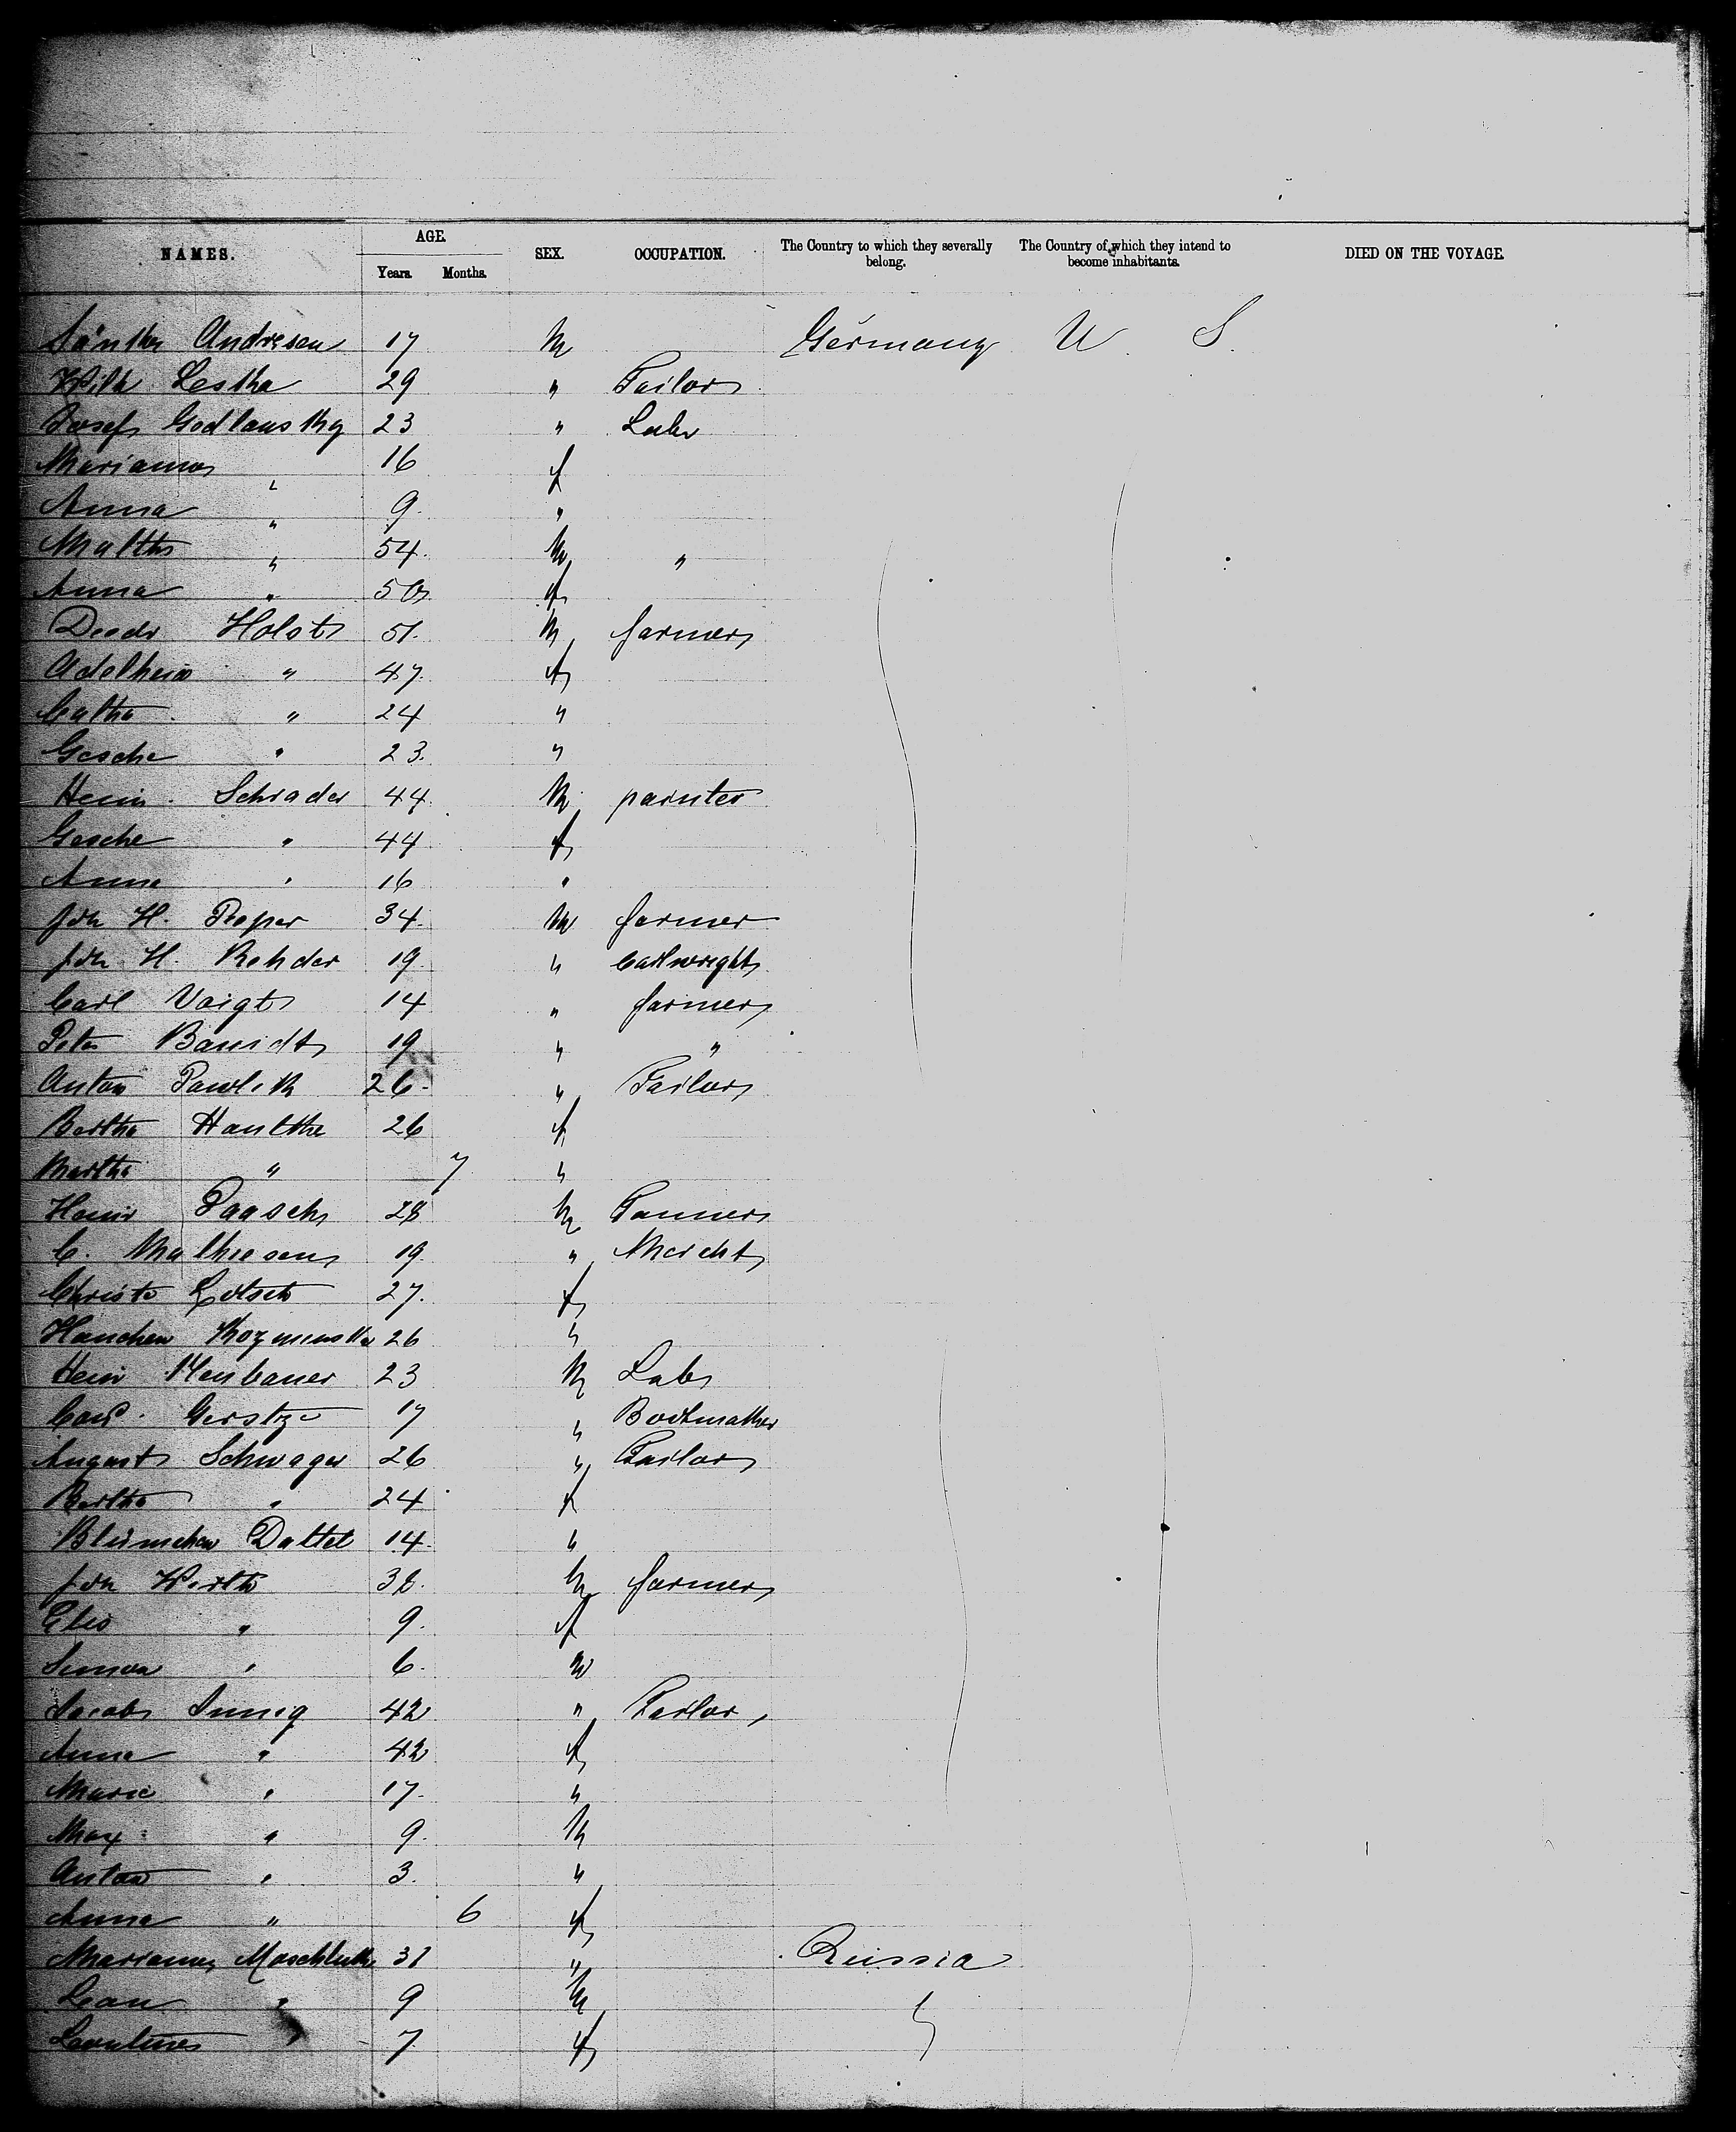 NAMES. AGE. SEX. OCCUPATION. The Country to which they severally belong. The Country of which they intend to become inhabitants. DIED ON THE VOYAGE.
Years. Months.
Andresen 17 M Germany U. S.
Wilh Lestka 29 " Tailor
Josef Godlausky 23 " Labr
Marianna " 16 f
Anna " 9 "
Matths " 54 M "
Anna " 50 f
Diedr Holst 51 M farmer
Adelheid " 47 f
Catha " 24 "
Gesche " 23 "
Heinr. Schrader 44 M painter
Gesche " 44 f
Anna " 16 "
Joh H. Pieper 34 M farmer
Joh H. Rehder 19 " Cartwright
Carl Voigt 14 " farmer
Peter 19 " "
Anton Pawlik 26 " Tailor
Bertha Hantke 26 f
Martha " 7 "
Heinr Paasch 28 M Tanner
C. Mathiesen 19 " Mercht
Christe 27 f
Hanchen Kozminska 26 "
Heinr Neubauer 23 M Labr
Carl 17 " Bootmaker
August Schwager 26 " Tailor
Bertha " 24 f
Blümchen Dattel 14 "
Joh Wirth 38 M farmer
Elis " 9 f
Simon " 6 M
Jacob 42 " Tailor
Anna " 42 f
Marie " 17 "
Max " 9 M
Anton " 3 "
Anna " 6 f
Marianna 31 " Russia
Leon " 9 M "
Leontine " 7 f